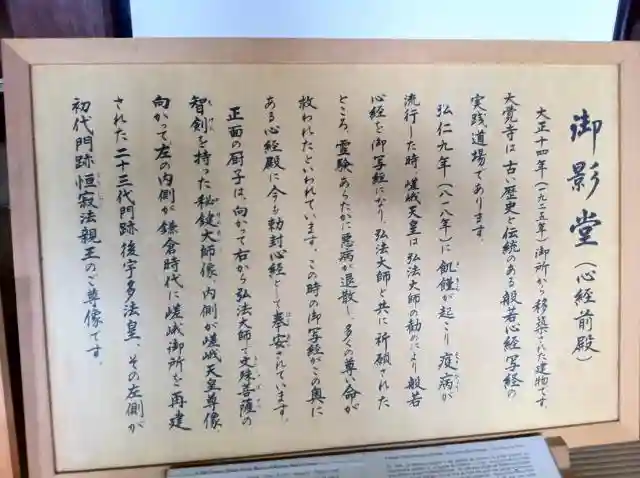 御影堂（心経前殿）
大正十四年（一九二五年）御所から移築された建物です。
大覚寺は古い歴史と伝統のある般若心経写経の
実践道場であります。
弘仁九年（八一八年）に飢饉が起こり疫病が
流行した時、嵯峨天皇は弘法大師の勧めにより般若
心経を御写経になり、弘法大師と共に祈願された
ところ、霊験あらたかに悪病が退散し、多くの尊い命が
救われたといわれています。この時の御写経がこの奥に
ある心経殿に今も勅封心経として奉安されています。
正面の厨子は、向かって右から弘法大師で文殊菩薩の
智剣を持った秘鍵大師像、内側が嵯峨天皇尊像、
向かって左の内側が鎌倉時代に嵯峨御所を再建
された二十三代門跡後宇多法皇、その左側が
初代門跡恒寂法親王のご尊像です。